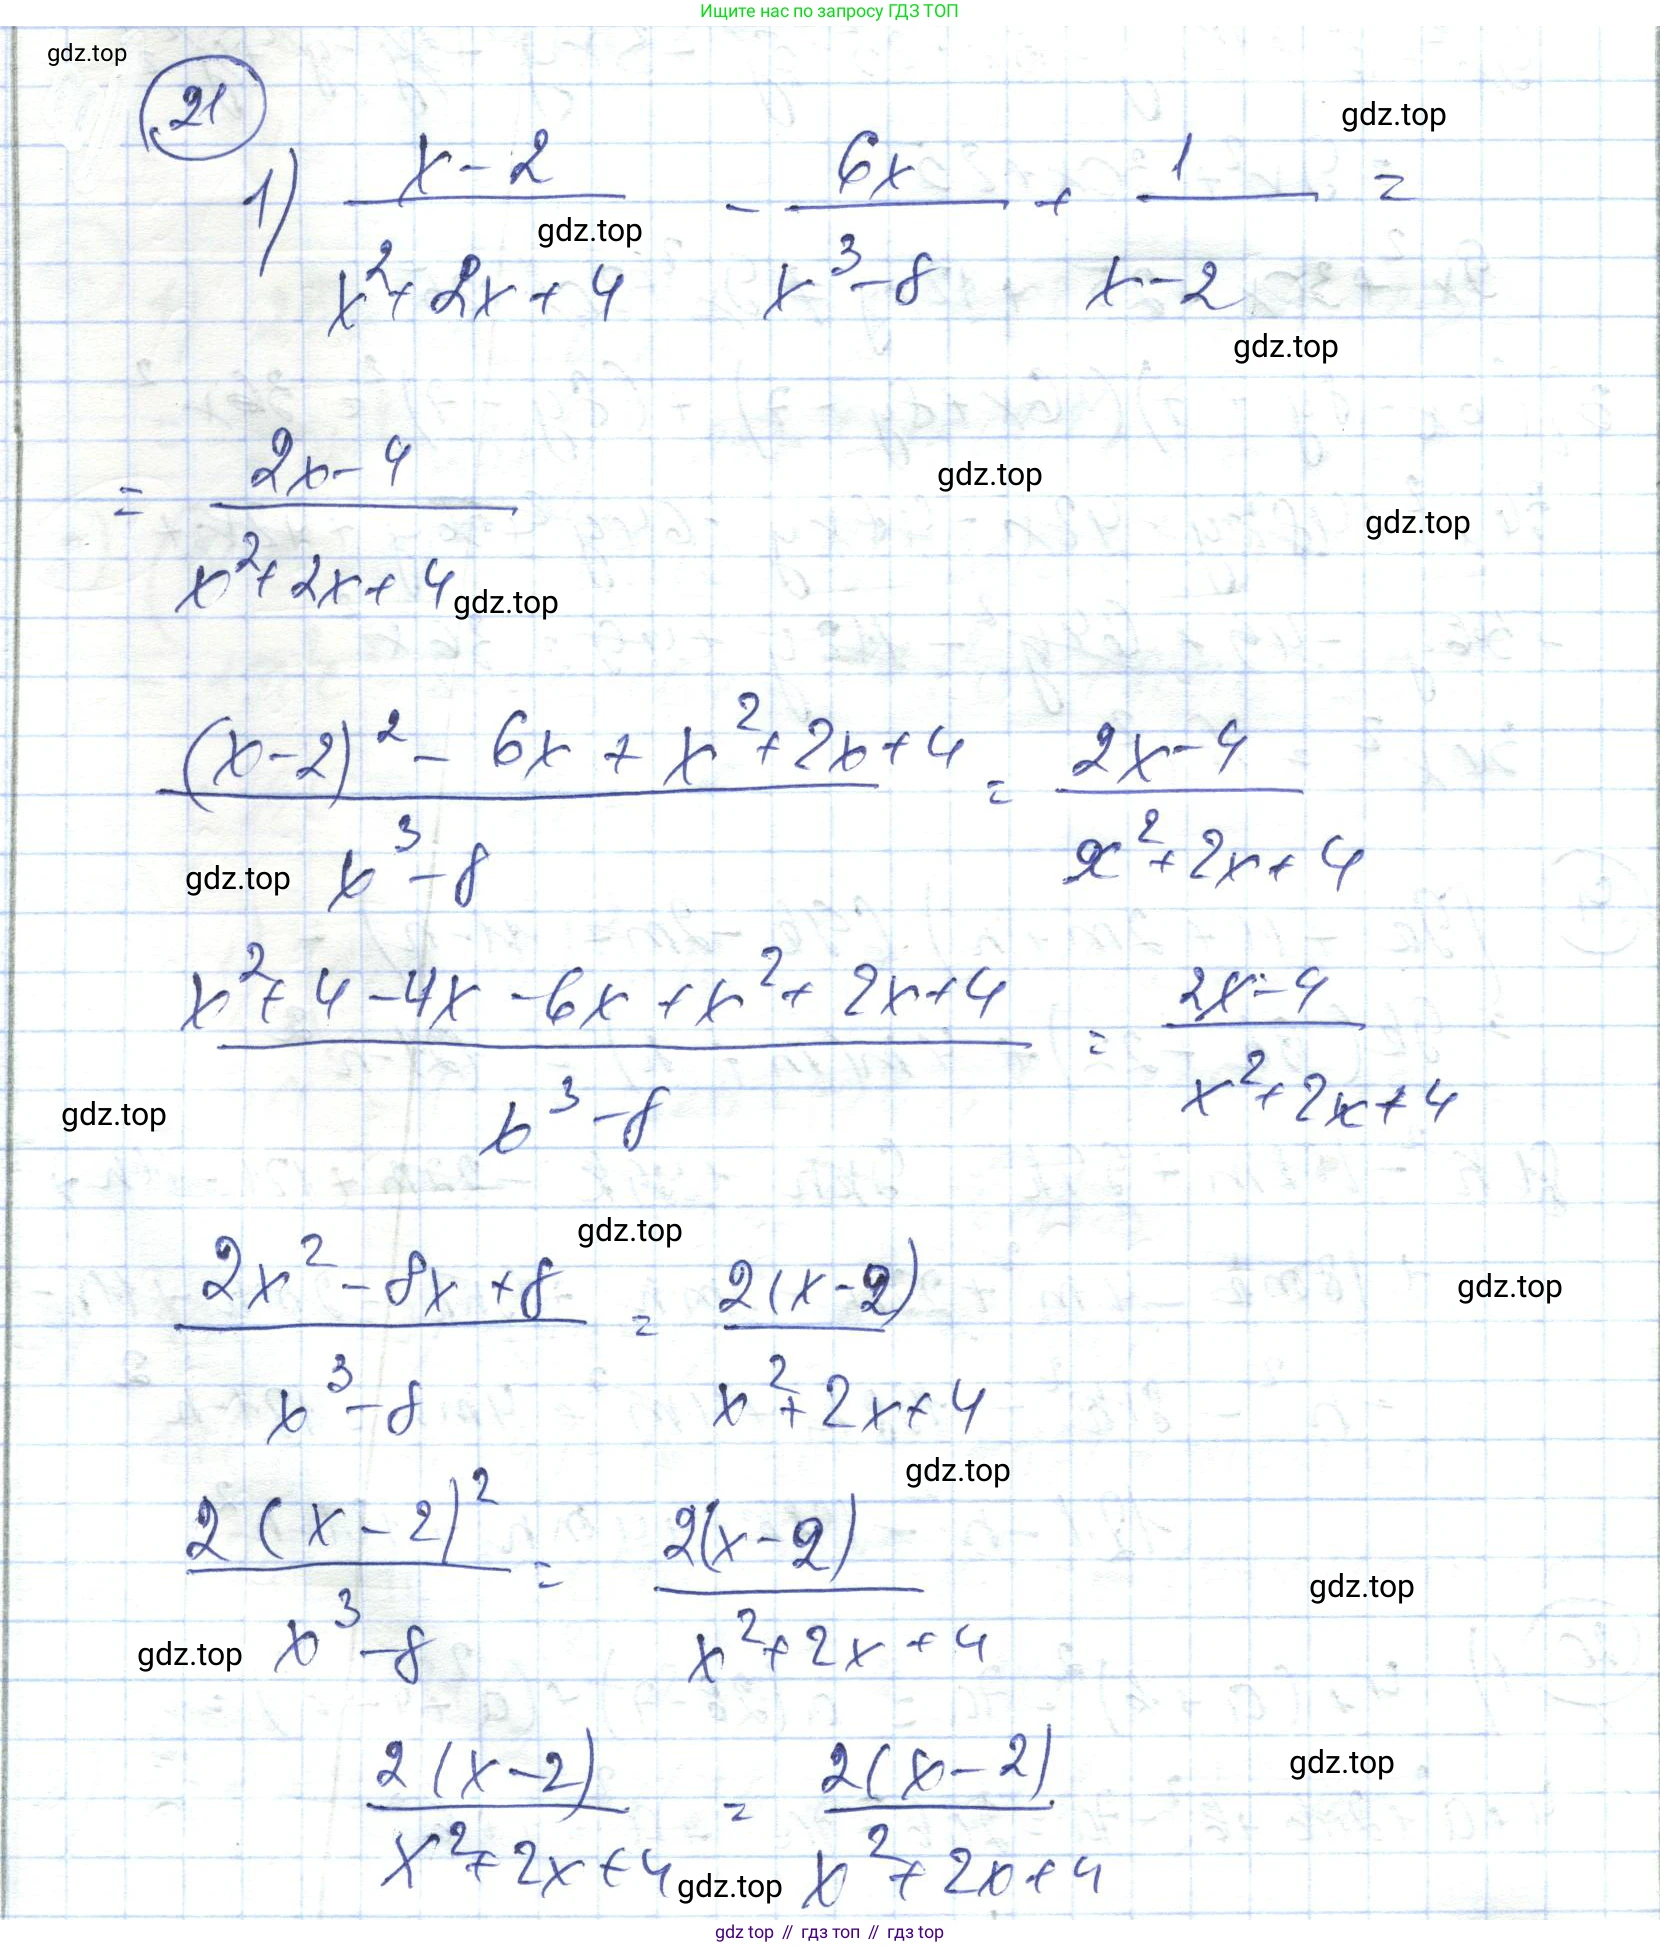 Ищите нас по запросу ГДЗ ТОП
gdz.top
21
gdz.top
1) (x-2)/(x²+2x+4) - 6x/(x³-8) + 1/(x-2) =
gdz.top
gdz.top
= (2x-4)/(x²+2x+4)
gdz.top
gdz.top
gdz.top
((x-2)² - 6x + x²+2x+4)/(x³-8) = (2x-4)/(x²+2x+4)
gdz.top
(x²+4-4x-6x+x²+2x+4)/(x³-8) = (2x-4)/(x²+2x+4)
gdz.top
gdz.top
(2x²-8x+8)/(x³-8) = 2(x-2)/(x²+2x+4)
gdz.top
gdz.top
2(x-2)²/(x³-8) = 2(x-2)/(x²+2x+4)
gdz.top
gdz.top
2(x-2)/(x²+2x+4) = 2(x-2)/(x²+2x+4)
gdz.top
gdz.top
gdz top // гдз топ // гдз top